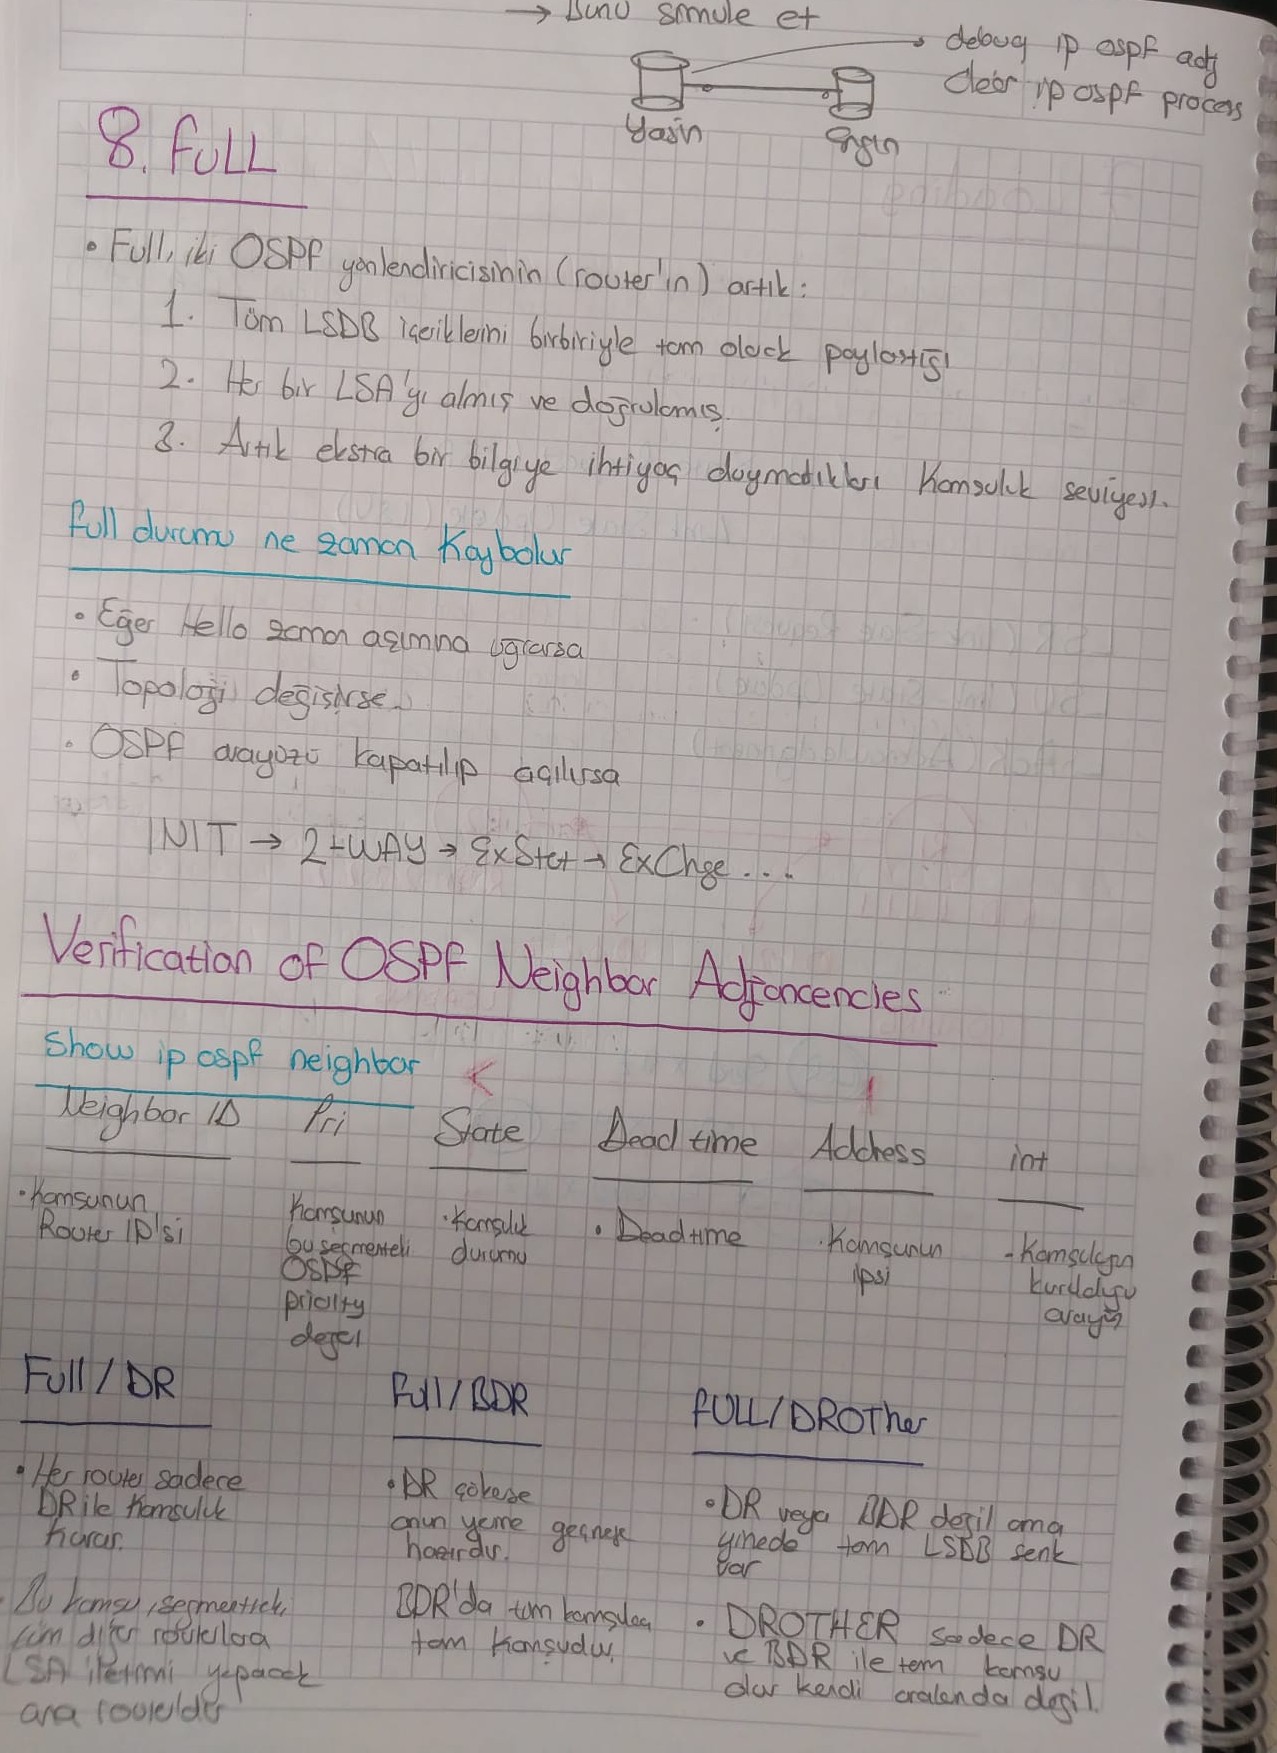 → Bunu simule et
debug ip ospf adj
clear ip ospf process
Yasin
Engin
8. FULL
• Full, iki OSPF yönlendiricisinin (router'ın) artık:
1. Tüm LSDB içeriklerini birbiriyle tam olarak paylaştığı
2. Her bir LSA'yı almış ve doğrulamış.
3. Artık ekstra bir bilgiye ihtiyaç duymadıkları Komşuluk seviyesi.
Full durumu ne zaman Kaybolur
• Eğer Hello zaman aşımına uğrarsa
• Topoloji değişirse.
• OSPF arayüzü kapatılıp açılırsa
INIT → 2-WAY → ExStat → ExChge ...
Verification of OSPF Neighbor Adjancencies
Show ip ospf neighbor
Neighbor ID Pri State Dead time Address int
• Komşunun
Router ID'si
Komşunun
bu segmenteki
OSPF
priority
değeri
• Komşuluk
durumu
• Dead time
• Komşunun
ipsi
- Komşuluğun
kurulduğu
arayüz
Full / DR
Full / BDR
FULL/DROTher
• Her router sadece
DR ile Komşuluk
kurar.
• Bu komşu, segmentteki
tüm diğer routerlara
LSA iletimi yapacak
ana routerdır
• DR çökerse
onun yerine geçmeye
hazırdır.
BDR'da tüm komşulara
tam Komşudur.
• DR veya BDR değil ama
yinede tam LSDB senk
var
• DROTHER sadece DR
ve BDR ile tam komşu
olur kendi aralarında değil.